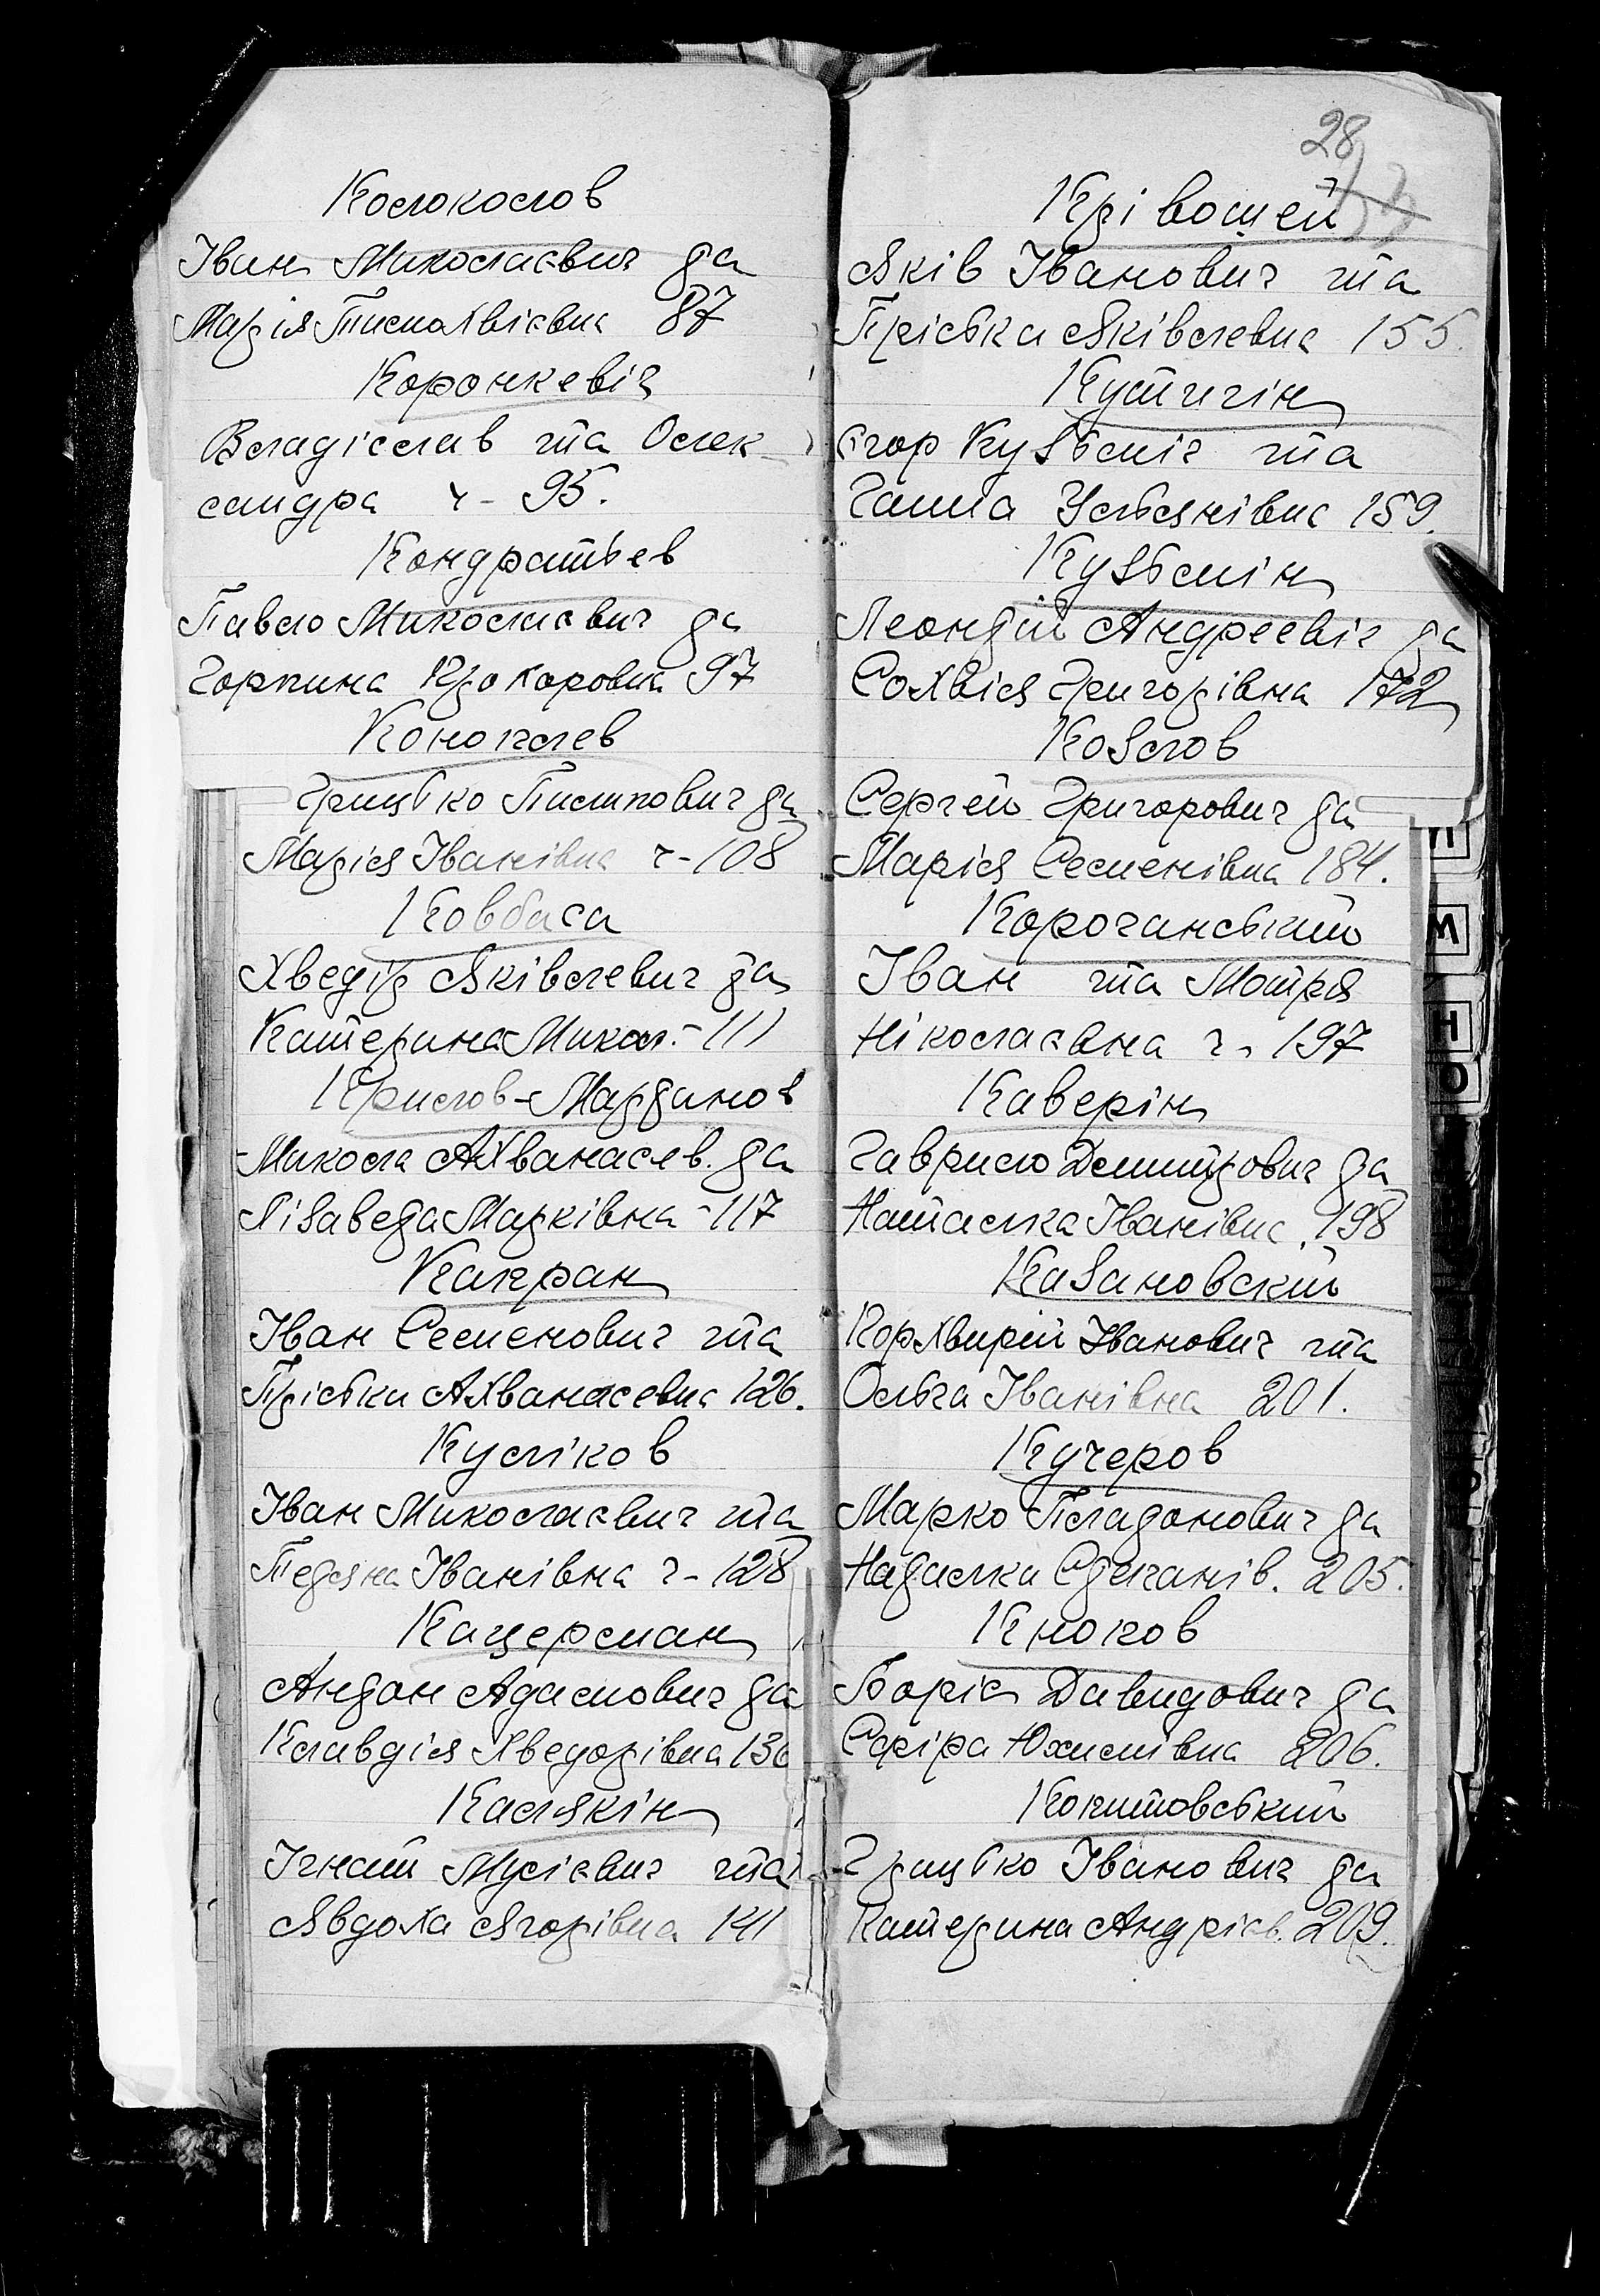 Колоколов
Іван Миколаєвич да
Марія Тимохвіївна 87
Коронкевіч
Владіслав та Олек-
сандра ч- 95.
Кондратьев
Павло Миколаєвич да
Горпина Прохоровна 97
Коноплев
Грицько Пилипович да
Марія Іванівна ч-108
Ковбаса
Хведір Яківлевич да
Катерина Микол.-111
Крилов-Марданов
Микола Ахванасєв. да
Лізаведа Марківна-117
Капран
Іван Семенович та
Пріськи Ахванасевна 126.
Куліков
Іван Миколаєвич та
Тедяна Іванівна ч-128
Кацерман
Андон Адамович да
Клавдія Хведорівна 136
Калякін
Ігнат Мусієвич та
Явдоха Ягорівна 141
28
Крівошей
Яків Іванович та
Пріська Яківлевна 155.
Кутигін
Єгор Кузьміч та
Ганна Ульянівна 159.
Кузьмін
Леондій Андреевіч да
Сохвія Григорівна 172
Козлов
Сергей Григорович да
Марія Семенівна 184.
Корочанський
Іван та Мотря
Ніколаєвна ч- 197
Каверін
Гаврило Демитрович да
Наталка Іванівна 198
Казановский
Корхвирій Іванович та
Ольга Іванівна 201.
Кучеров
Марко Пладонович да
Надалки Сдепанів. 205.
Кнопов
Боріс Давидович да
Сфіра Юхимівна 206.
Копитовський
Грицько Іванович да
Катерина Андрієв. 209.
П
М
Н
О